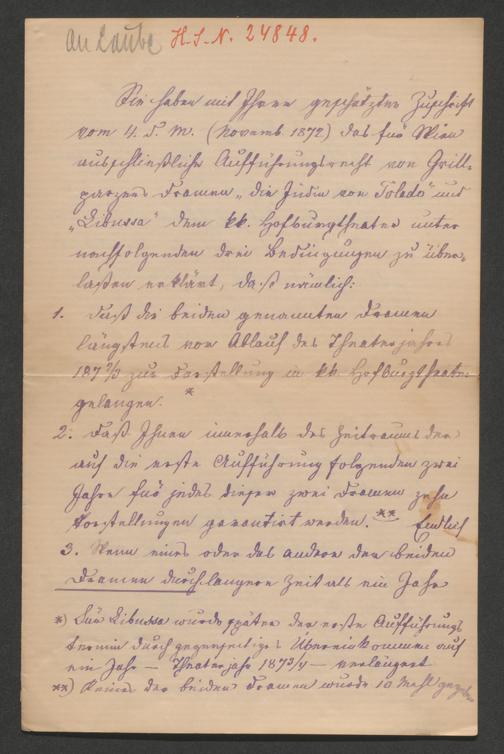 An Laube H.I.N. 24848.
Sie haben mit Ihrer geschätzten Zuschrift
vom 4. d. M. (Novemb 1872) das für Wien
ausschließliche Aufführungsrecht von Grill-
parzers Dramen „die Jüdin von Toledo" und
„Libussa" dem kk. Hofburgtheater unter
nachfolgenden drei Bedingungen zu über-
lassen erklärt, daß nämlich:
1. Daß die beiden genannten Dramen
längstens vor Ablauf des Theaterjahres
1872/3 zur Darstellung im kk. Hofburgtheater
gelangen. *
2. Daß Ihnen innerhalb des Zeitraums der
auf die erste Aufführung folgenden zwei
Jahre für jedes dieser zwei Dramen zehn
Vorstellungen garantirt werden. ** Endlich
3. Wenn eines oder das andere der beiden
Dramen durch längere Zeit als ein Jahr
*) Für Libussa wurde später der erste Aufführungs
termin durch gegenseitiges Übereinkommen auf
ein Jahr — Theaterjahr 1873/4 — verlängert
**) Keines der beiden Dramen wurde 10 Mahl gegeben